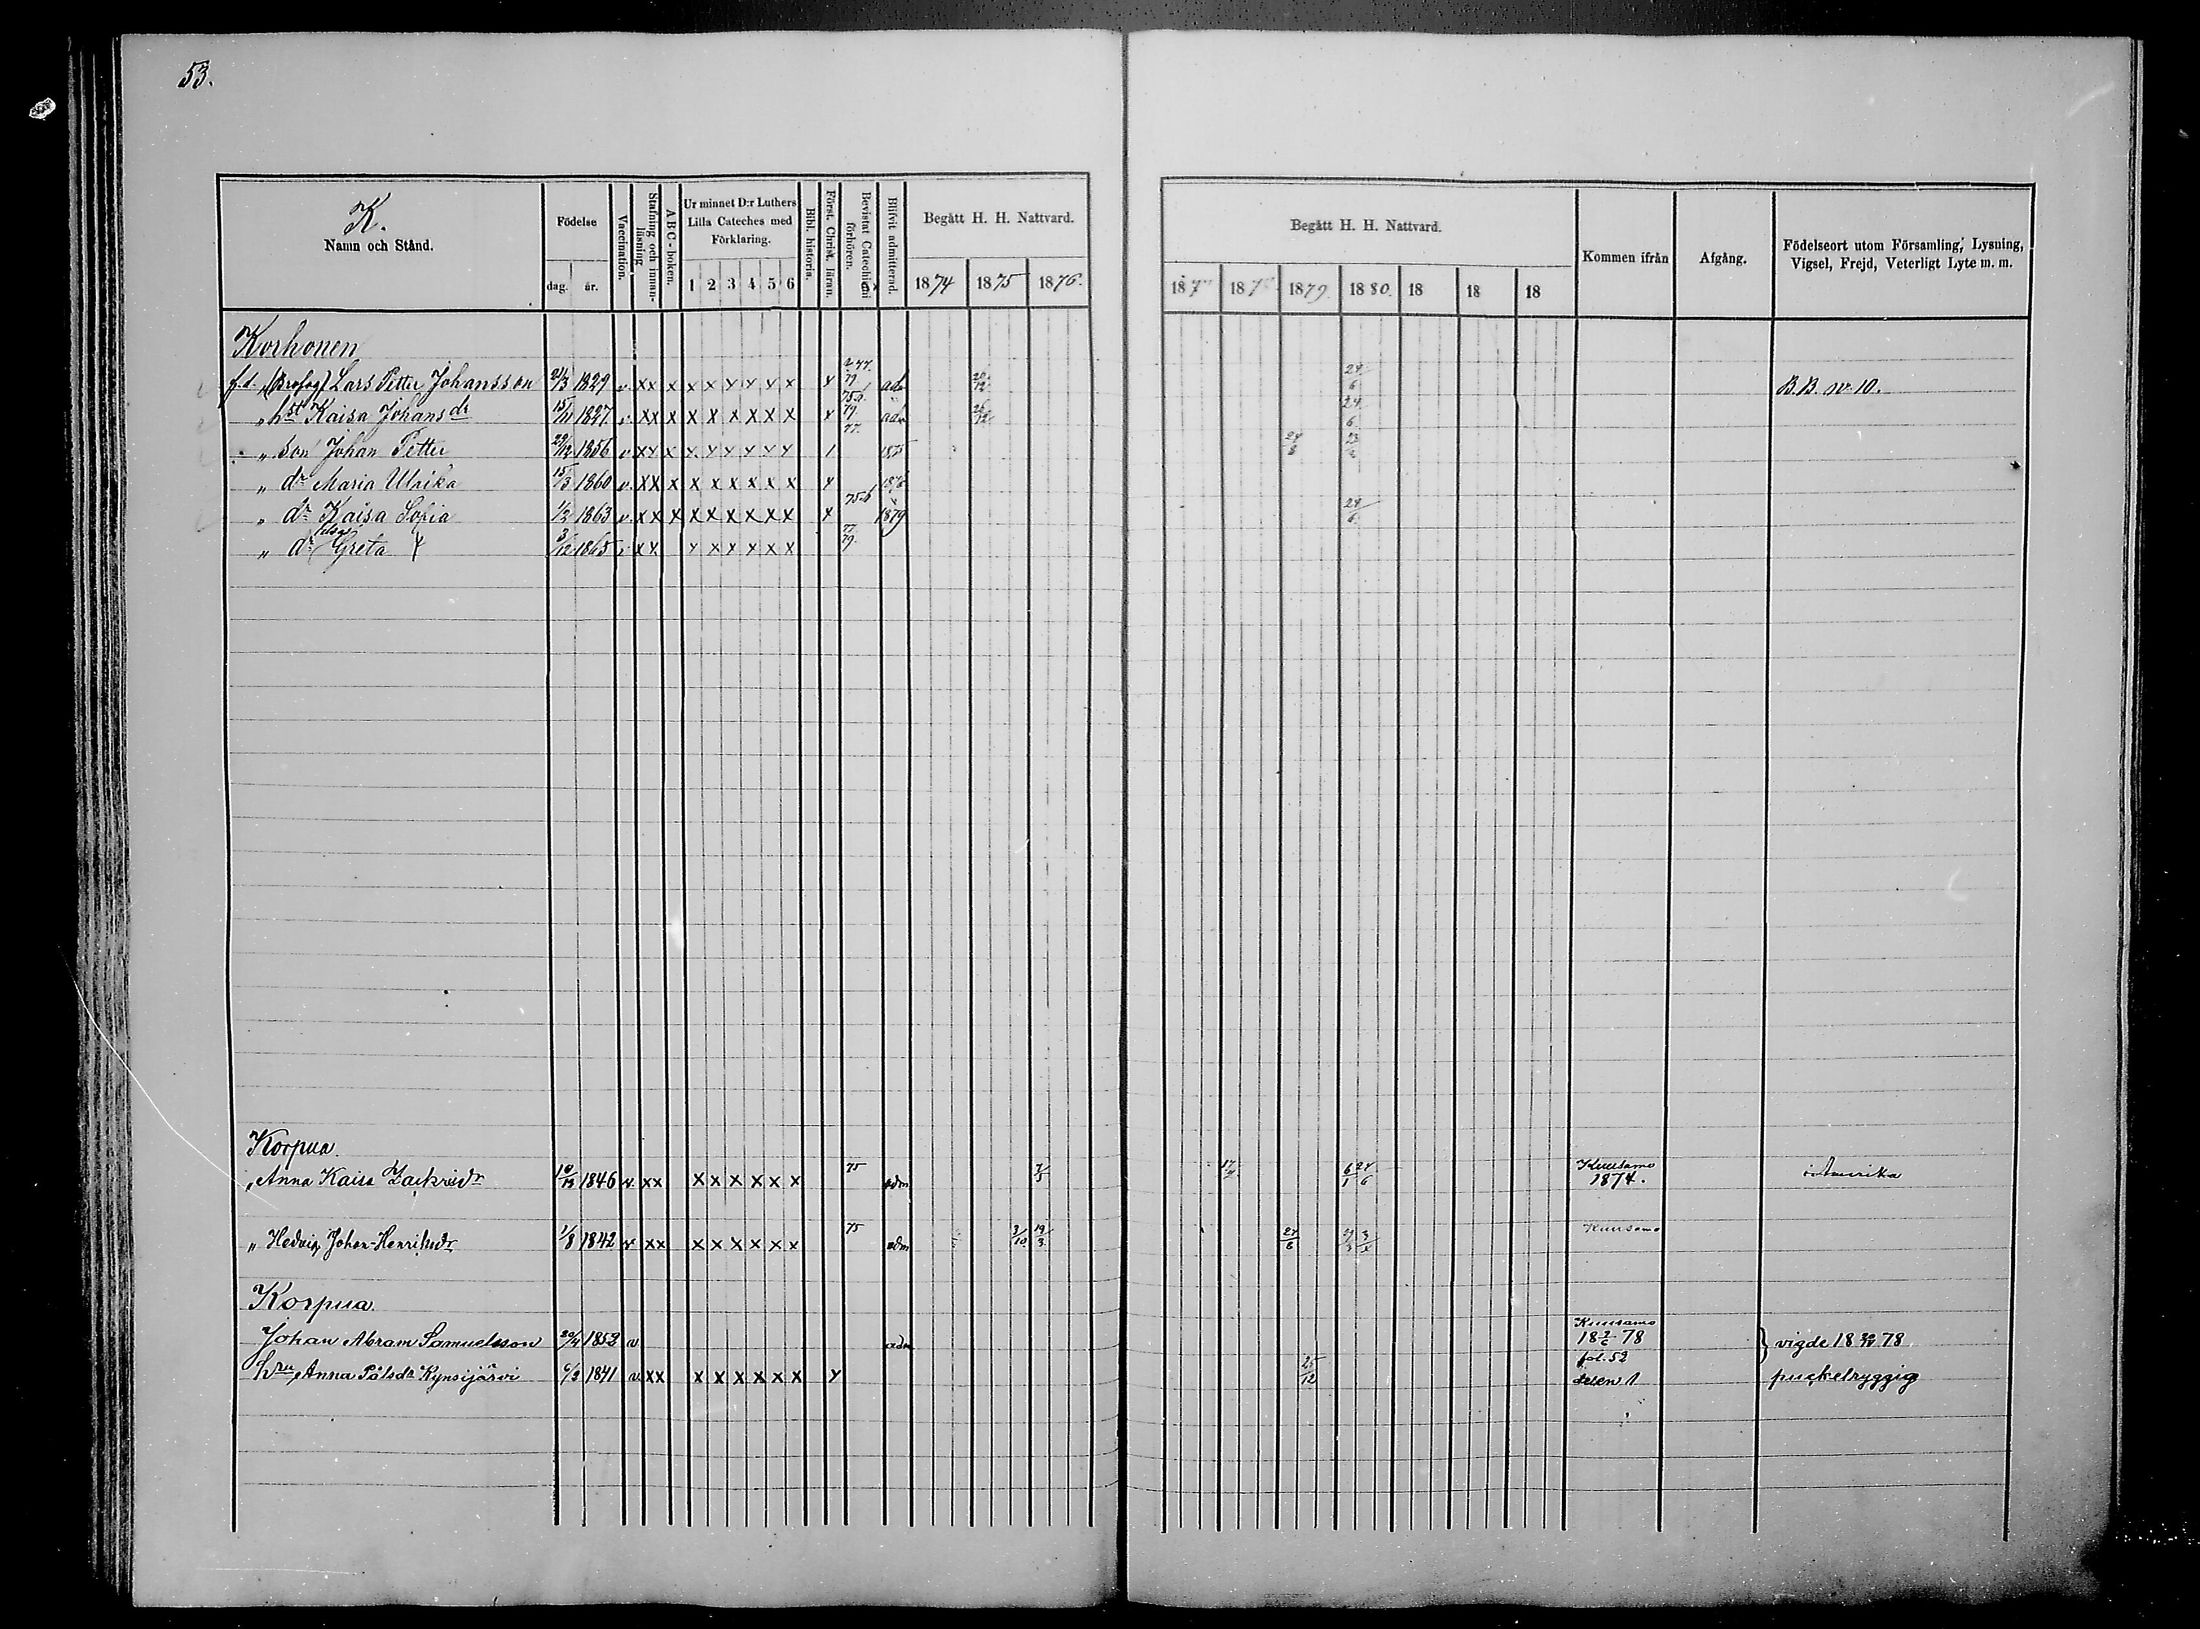 53.
K.
Namn och Stånd.
Födelse
dag. år.
Vaccination.
Stafning och innan-läsning
ABC-boken.
Ur minnet D:r Luthers Lilla Cateches med Förklaring.
1 2 3 4 5 6
Bibl. historia.
Först. Christ. läran.
Bevistat Catechismi förhören.
Blifvit admitterad.
Begått H. H. Nattvard.
1874 1875 1876.
Begått H. H. Nattvard.
187 187 1879. 1880. 18 18 18
Kommen ifrån
Afgång.
Födelseort utom Församling, Lysning, Vigsel, Frejd, Veterligt Lyte m. m.
Korhonen
f.d. Lars Petter Johansson 21/3 1829 v. xx x x x x x x x x 79 adm 24/6 B.B. 10.
" Kaisa Johansdr 15/11 1827. v. xx x x x x x x x x 79. 77. adm 26/12 24/6
" son Johan Petter 29/12 1856 v. xx x x x x x x x 1875
" dr Maria Ulrika 15/3 1860 v. xx x x x x x x x x 1876
" dr Kaisa Sofia 1/2 1863 v. xx x x x x x x x x 1879 24/6
" dr Greta 3/12 1865 xx x x x x x x 77 79.
Korpua.
" Anna Kaisa Zackridr 10/12 1846 v. xx x x x x x x 75 adm 7/5 6/1 24/6 Kuusamo 1874. i Amerika
" Hedvig Johan-Henriksdr 1/8 1842 v xx x x x x x x 75 adm 3/10 19/3 24/6 Kuusamo
Korpua
Johan Abram Samuelsson 20/4 1853 v adm Kuusamo 18 78 } vigde 18 78
fol. 52
hru Anna Pålsdr Kynsijärvi 6/3 1841 v. xx x x x x x x x 25/12 1 puckelryggig